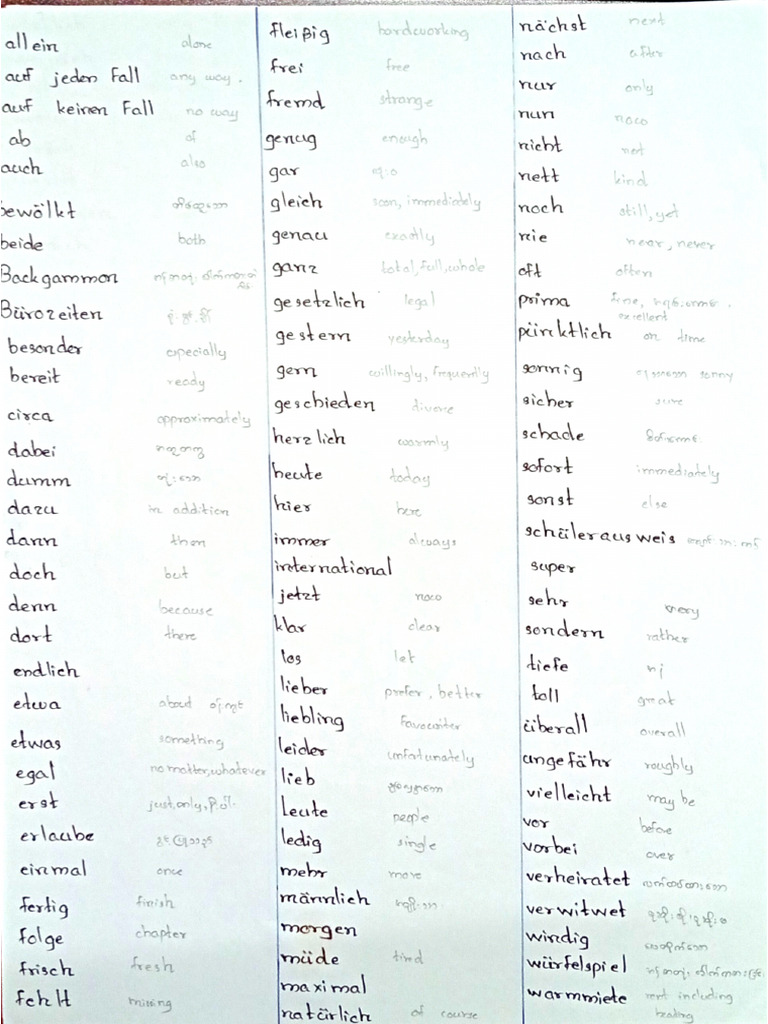 allein alone
auf jeden Fall any way.
auf keinen Fall no way
ab of
auch also
bewölkt
beide both
Backgammon
Bürozeiten
besonder especially
bereit ready
circa approximately
dabei
dumm
dazu in addition
dann then
doch but
denn because
dort there
endlich
etwa about
etwas something
egal no matter, whatever
erst just, only,
erlaube
einmal once
fertig finish
folge chapter
frisch fresh
fehlt missing
fleißig hardworking
frei free
fremd strange
genug enough
gar
gleich soon, immediately
genau exactly
ganz total, full, whole
gesetzlich legal
gestern yesterday
gern willingly, frequently
geschieden
herzlich warmly
heute today
hier here
immer always
international
jetzt now
klar clear
los let
lieber prefer, better
liebling
leider unfortunately
lieb
Leute people
ledig single
mehr more
männlich
morgen
müde tired
maximal
natürlich of course
nächst next
nach after
nur only
nun now
nicht not
nett kind
noch still, yet
nie near, never
oft often
prima fine,
excellent
pünktlich on time
sonnig sonny
sicher sure
schade
sofort immediately
sonst else
schülerausweis
super
sehr very
sondern rather
tiefe
toll great
überall overall
ungefähr roughly
vielleicht may be
vor before
vorbei over
verheiratet
verwitwet
windig
würfelspiel
warmmiete rent including
heating